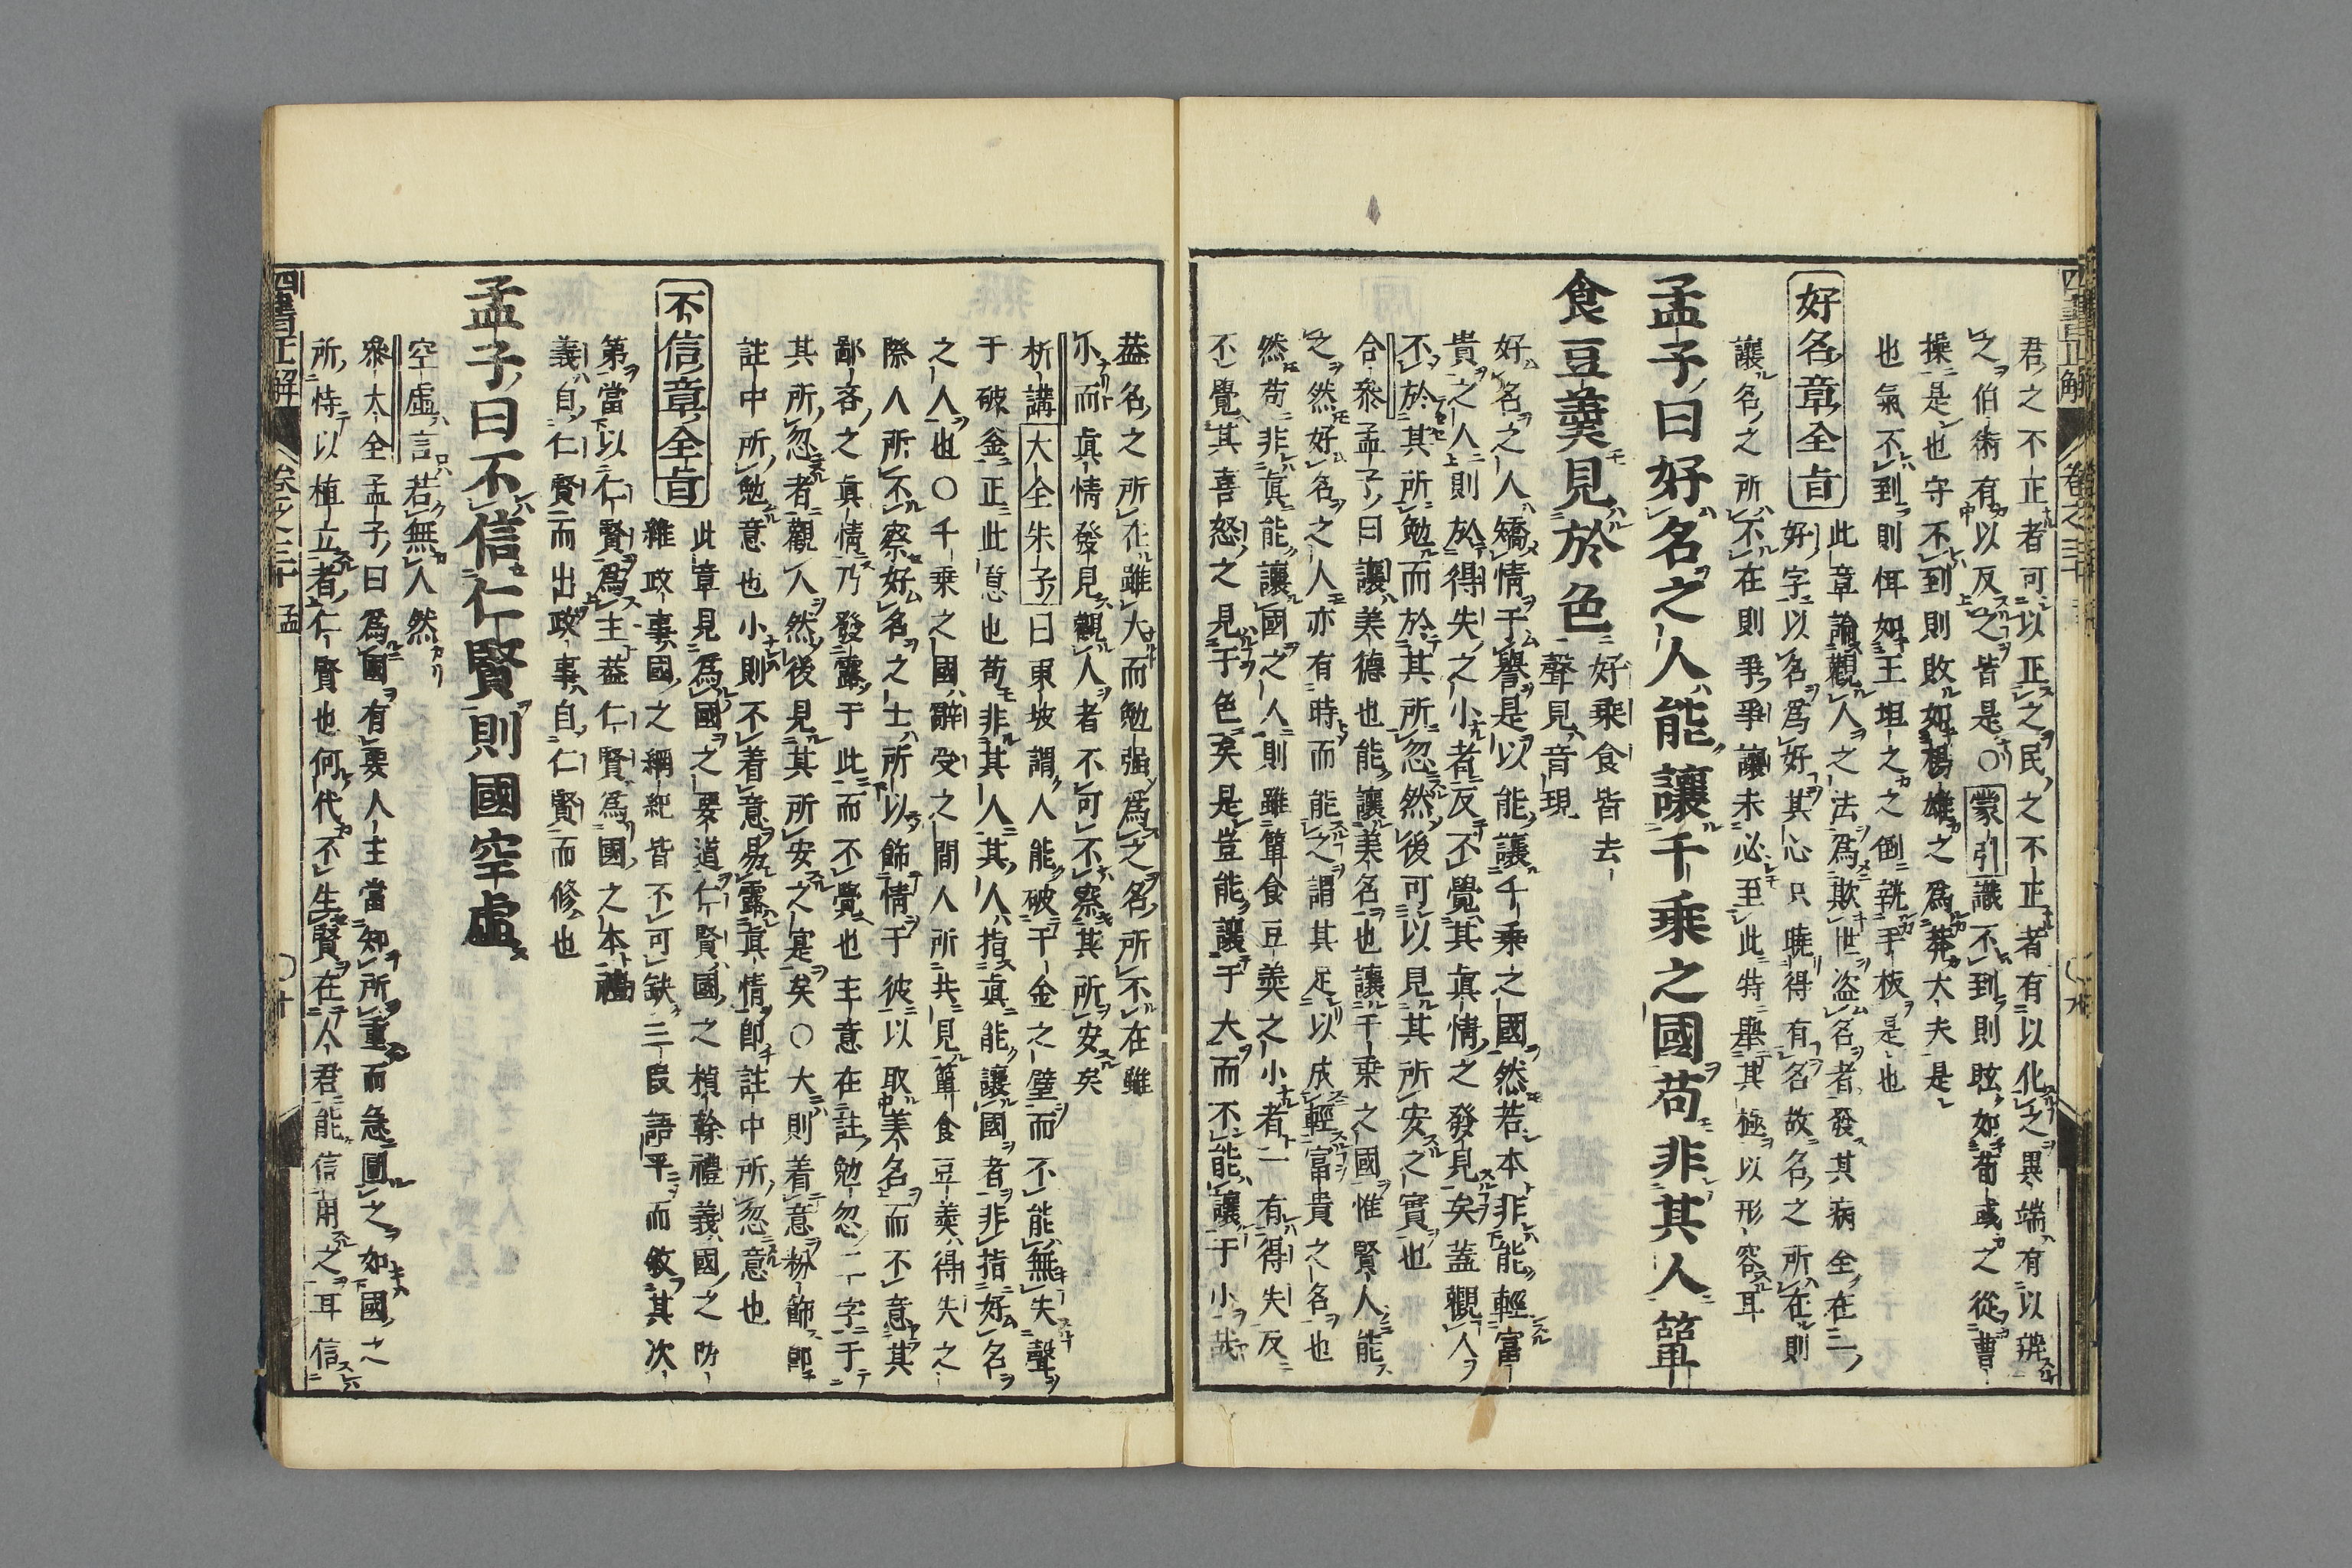 君之不正者可以正之民之不正者有以化之異端有以辨
之伯術有以反之皆是〇蒙引識不到則眩如荀彧之從曹
操是也守不到則敗如楊雄之為莽大夫是
也氣不到則恇如王坦之之倒執手板是也
好名章全旨
此章論觀人之法為欺世盜名者發其病全在二
好字以名為好其心只曉得有名故名之所在則
讓名之所不在則爭爭讓未必至此特舉其極以形容耳
孟子曰好名之人能讓千乘之國苟非其人簞
食豆羹見於色
好乘食皆去
聲見音現
好名之人矯情于譽是以能讓千乘之國然若本非能輕富
貴之人則於得失之小者反不覺其真情之發見矣蓋觀人
不於其所勉而於其所忽然後可以見其所安之實也
合參孟子曰讓美德也能讓美名也讓千乘之國惟賢人能
之然好名之人亦有時而能之謂其足以成輕富貴之名也
然苟非真能讓國之人則雖簞食豆羹之小者一有得失反
不覺其喜怒之見于色矣是豈能讓于大而不能讓于小哉
蓋名之所在雖大而勉强為之名所不在雖
小而真情發見觀人者不可不察其所安矣
析講大全朱子曰東坡謂人能破千金之璧而不能無失聲
于破釜正此意也苟非其人其人指真能讓國者非指好名
之人也〇千乘之國辭受之間人所共見簞食豆羹得失之
際人所不察好名之士所以飾情于彼以取美名而不意其
鄙吝之真情乃發露于此而不覺也主意在註勉忽二字于
其所忽者觀人然後見其所安之寔矣〇大則着意粉飾即
註中所勉意也小則不着意易露真情即註中所忽意也
不信章全旨
此章見為國之要道仁賢國之楨幹禮義國之防
維政事國之綱紀皆不可缺三段語平而敘其次
第當以仁賢為主蓋仁賢為國之本禮
義自仁賢而出政事自仁賢而修也
孟子曰不信仁賢則國空虛
空虛言若無人然
參大全孟子曰為國有要人主當知所重而急圖之如國之
所恃以植立者仁賢也何代不生賢在人君能信用之耳信
四書正解
卷之三十 孟